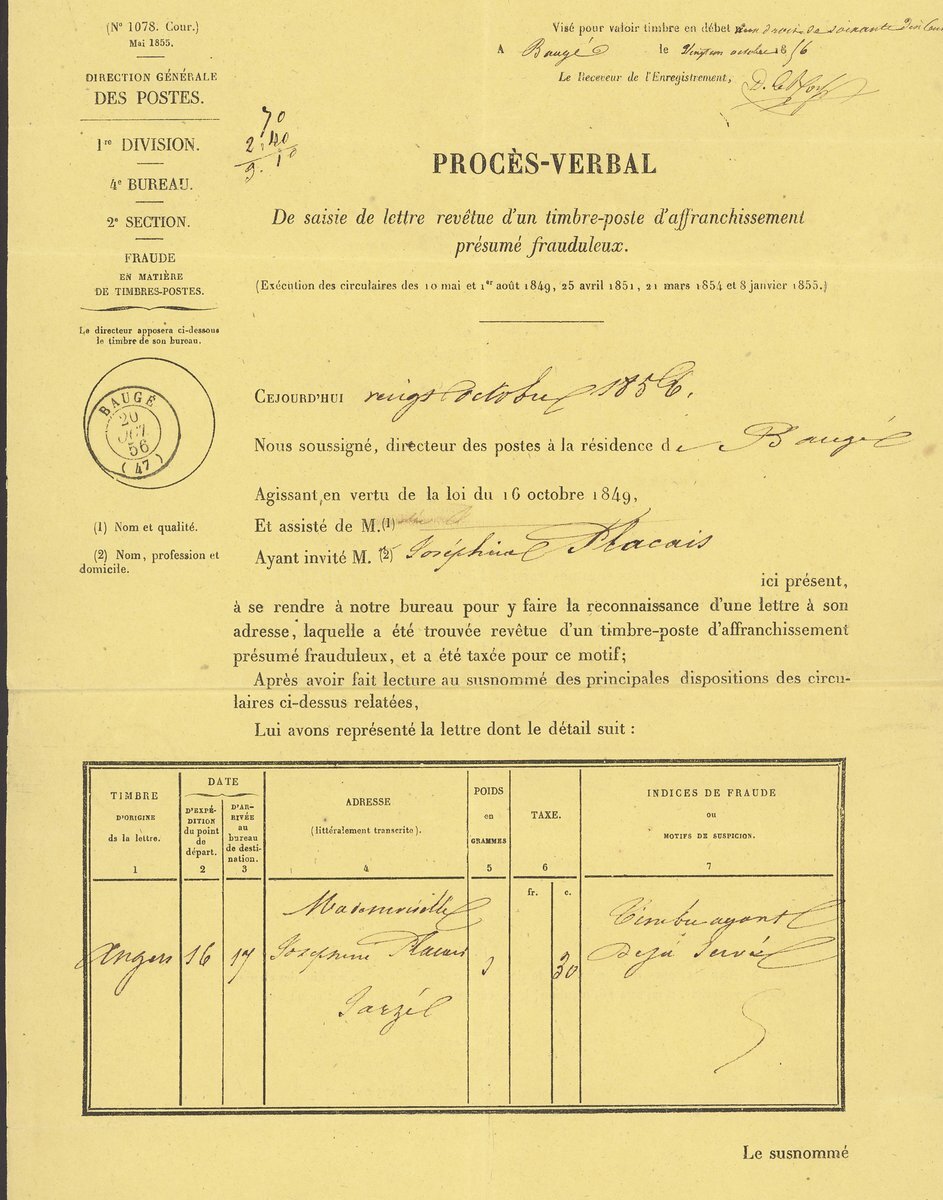 (Nº 1078. Cour.)
Mai 1855.
DIRECTION GÉNÉRALE
DES POSTES.
1re DIVISION.
4e BUREAU.
2e SECTION.
FRAUDE
EN MATIÈRE
DE TIMBRES-POSTES.
Le directeur apposera ci-dessous
le timbre de son bureau.
BAUGÉ
20
OCT
56
(47)
(1) Nom et qualité.
(2) Nom, profession et
domicile.
Visé pour valoir timbre en débet droit de soixante dix
A Baugé le Vingt octobre 1856
Le Receveur de l'Enregistrement,
70
2.40
3.10
PROCÈS-VERBAL
De saisie de lettre revêtue d'un timbre-poste d'affranchissement
présumé frauduleux.
(Exécution des circulaires des 10 mai et 1er août 1849, 25 avril 1851, 21 mars 1854 et 8 janvier 1855.)
CEJOURD'HUI vingt octobre 1856.
Nous soussigné, directeur des postes à la résidence de Baugé
Agissant en vertu de la loi du 16 octobre 1849,
Et assisté de M. (1)
Ayant invité M. (2) Joséphine Placais
ici présent,
à se rendre à notre bureau pour y faire la reconnaissance d'une lettre à son
adresse, laquelle a été trouvée revêtue d'un timbre-poste d'affranchissement
présumé frauduleux, et a été taxée pour ce motif;
Après avoir fait lecture au susnommé des principales dispositions des circu-
laires ci-dessus relatées,
Lui avons représenté la lettre dont le détail suit :
TIMBRE
D'ORIGINE
ds la lettre.
1
DATE
D'EXPÉ-
DITION
du point
de
départ.
2
D'AR-
RIVÉE
au
bureau
de desti-
nation.
3
ADRESSE
(littéralement transcrite).
4
POIDS
en
GRAMMES
5
TAXE.
6
INDICES DE FRAUDE
ou
MOTIFS DE SUSPICION.
7
fr. c.
Angers 16 17
Mademoiselle
Joséphine Placais
Jarzé
30
Timbre ayant
Déjà Servé
Le susnommé